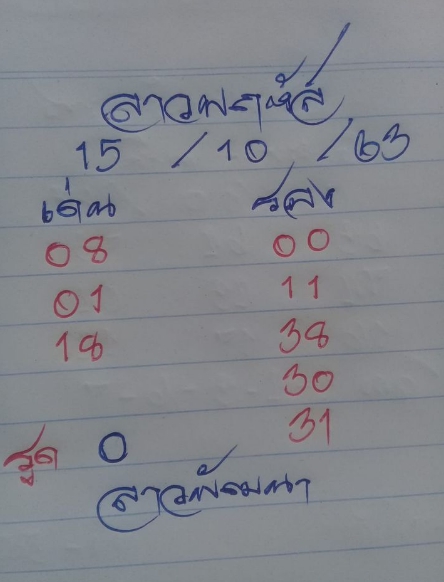 ลาวพฤหัส
15 / 10 / 63
เด่น รอง
08 00
01 11
18 38
30
31
รูด 0
ลาวพัฒนา